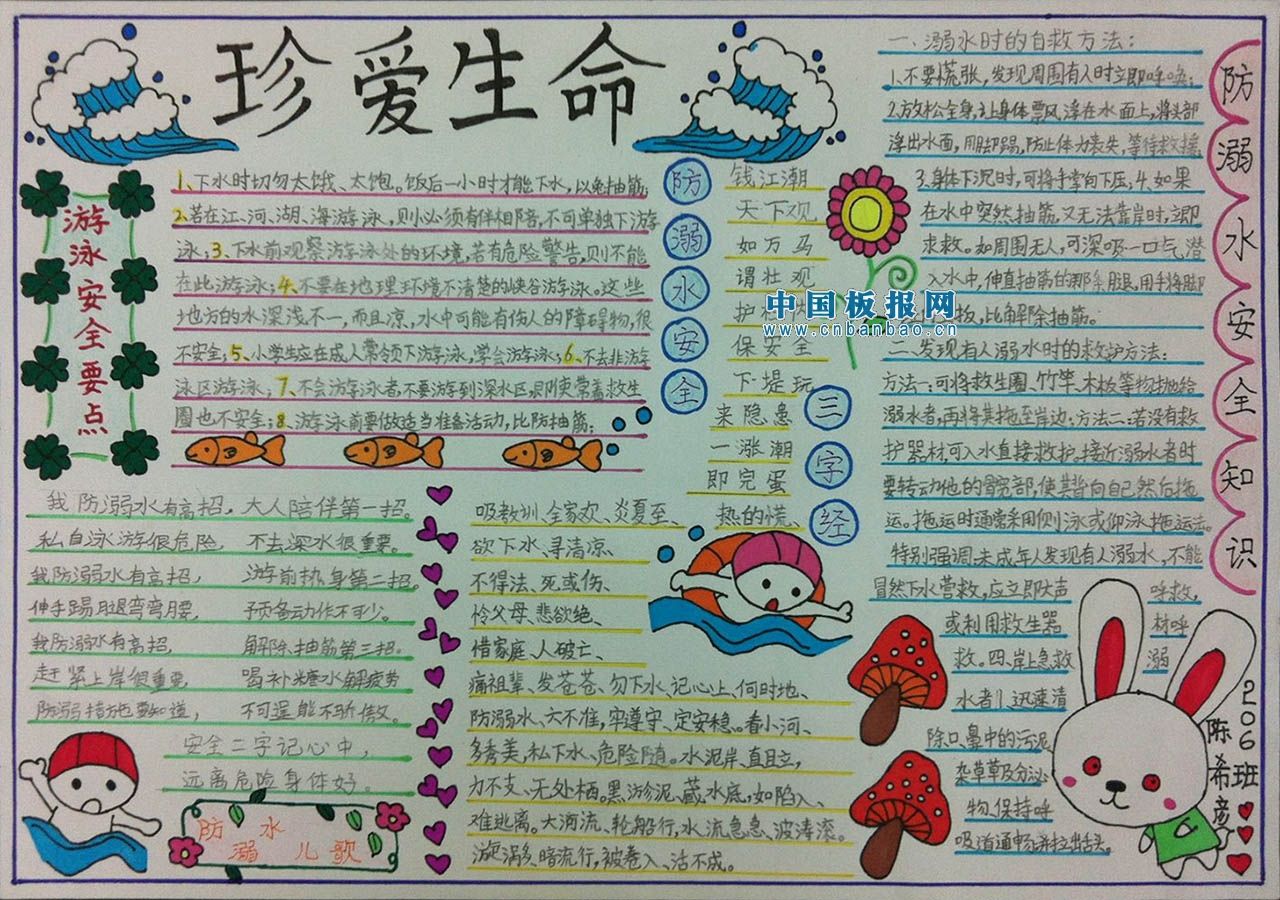 珍爱生命
游泳安全要点
1、下水时切勿太饿、太饱。饭后一小时才能下水，以免抽筋；
2、若在江、河、湖、海游泳，则必须有伴相陪，不可单独下游
泳；3、下水前观察游泳处的环境，若有危险警告，则不能
在此游泳；4、不要在地理环境不清楚的峡谷游泳。这些
地方的水深浅不一，而且凉，水中可能有伤人的障碍物，很
不安全；5、小学生应在成人带领下游泳，学会游泳；6、不去非游
泳区游泳；7、不会游泳者，不要游到深水区，即使带着救生
圈也不安全；8、游泳前要做适当准备活动，比防抽筋；
防溺水安全
三字经
钱江潮
天下观
如万马
谓壮观
护
保安全
下堤玩
来隐患
一涨潮
即完蛋
热的慌、
吸教训、全家欢、炎夏至、
欲下水、寻清凉、
不得法、死或伤、
怜父母、悲欲绝、
惜家庭、人破亡、
痛祖辈、发苍苍、勿下水、记心上、何时地、
防溺水、六不准，牢遵守、定安稳。看小河、
多秀美，私下水、危险随。水泥岸、直且立，
力不支、无处栖。黑淤泥、藏水底，如陷入、
难逃离。大河流、轮船行，水流急急、波涛滚。
漩涡多、暗流行，被卷入、活不成。
我防溺水有高招，大人陪伴第一招。
私自泳游很危险，不去深水很重要。
我防溺水有高招，游前热身第二招。
伸手踢腿弯弯腰，预备动作不可少。
我防溺水有高招，解除抽筋第三招。
赶紧上岸很重要，喝补糖水解疲劳
防溺措施要知道，不可逞能不骄傲。
安全二字记心中，
远离危险身体好。
防溺水儿歌
防溺水安全知识
一、溺水时的自救方法：
1.不要慌张，发现周围有人时立即呼唤；
2.放松全身，让身体票风浮在水面上，将头部
浮出水面，用脚踢，防止体力丧失，等待救援
3.身体下沉时，可将手掌向下压；4.如果
在水中突然抽筋，又无法靠岸时，立即
求救。如周围无人，可深吸一口气，潜
入水中，伸直抽筋的那条腿，用手将脚
板，比解除抽筋。
二、发现有人溺水时的救护方法：
方法一：可将救生圈、竹竿、木板等物抛给
溺水者，再将其拖至岸边；方法二：若没有救
护器材，可入水直接救护。接近溺水者时
要转动他的髋部，使其背向自己然后拖
运。拖运时通常采用侧泳或仰泳拖运法。
特别强调：未成年人发现有人溺水，不能
冒然下水营救，应立即大声呼救，
或利用救生器材呼
救。四、岸上急救溺
水者1、迅速清
除口、鼻中的污泥
杂草草及分泌
物，保持呼
吸道通畅并拉出舌头。
206班
陈希彦
中国板报网
www.cnbanbao.cn